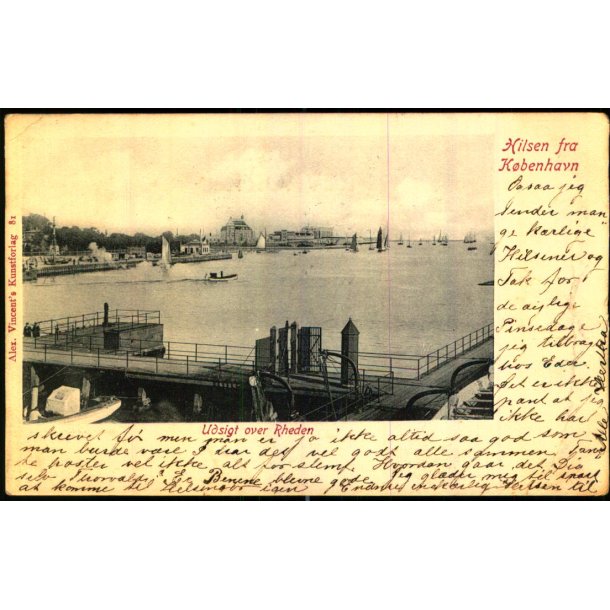 Hilsen fra
København
Ogsaa jeg
sender man
ge kærlige
Hilsener og
Tak for
de dejlige
Pinsedage
hos Eder.
Det er ikke
pænt at jeg
ikke har
Alex. Vincent's Kunstforlag 81
Udsigt over Rheden
skrevet før men man er jo ikke altid saa god som
man burde være I har det vel godt alle sammen
hoster vel ikke alt for slemt. Hvordan gaar det Dig
selv Thorvald? Er Benene blevne gode Jeg glæder mig til snart
at komme til Helsingør igen Endnu en kærlig Hilsen til
Alle